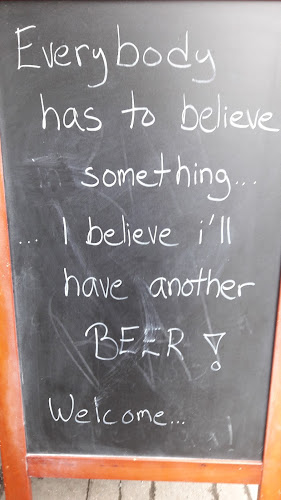 Everybody
has to believe
something...
... I believe i'll
have another
BEER!
Welcome...